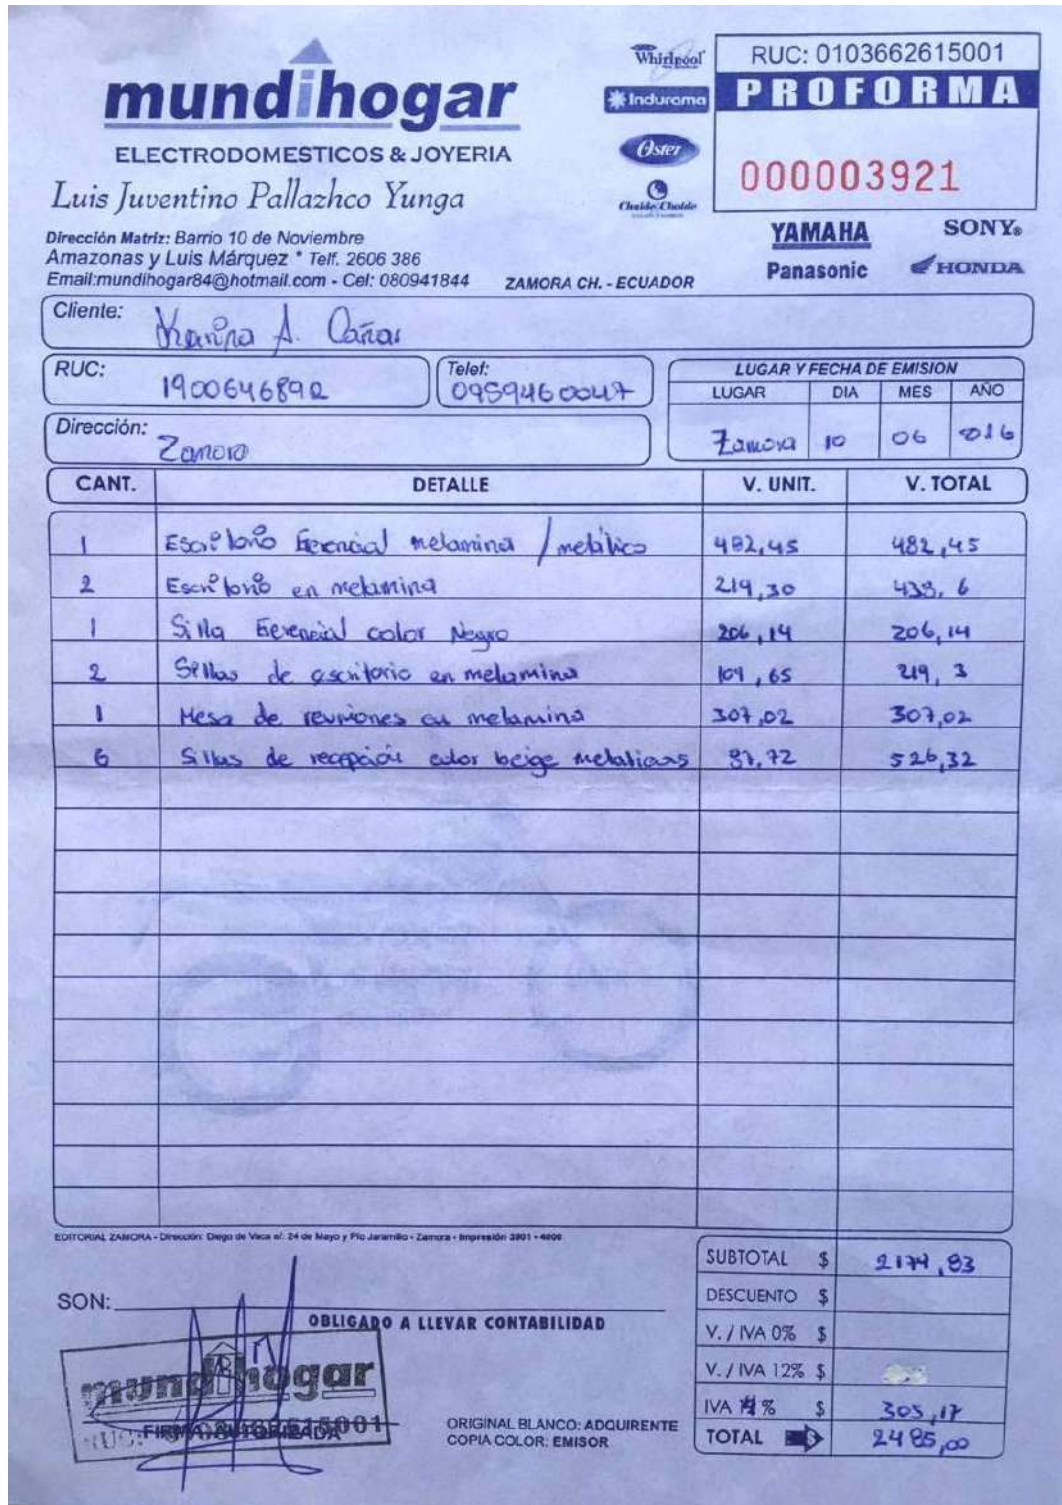 mundihogar
ELECTRODOMESTICOS & JOYERIA
Luis Juventino Pallazhco Yunga
Dirección Matriz: Barrio 10 de Noviembre
Amazonas y Luis Márquez * Telf. 2606 386
Email:mundihogar84@hotmail.com - Cel: 080941844
ZAMORA CH. - ECUADOR
Whirlpool
Indurama
Oster
Chaide Chaide
RUC: 0103662615001
PROFORMA
000003921
YAMAHA SONY
Panasonic HONDA
Cliente: Karina A. Cañar
RUC: 1900646892
Telef: 0959460047
Dirección: Zamora
LUGAR Y FECHA DE EMISION
LUGAR DIA MES AÑO
Zamora 10 06 016
CANT. DETALLE V. UNIT. V. TOTAL
1 Escritorio Gerencial melamina / metálico 482,45 482,45
2 Escritorio en melamina 219,30 438,6
1 Silla Gerencial color Negro 206,14 206,14
2 Sillas de escritorio en melamina 109,65 219,3
1 Mesa de reuniones en melamina 307,02 307,02
6 Sillas de recepción color beige metalicas 87,72 526,32
EDITORIAL ZAMORA - Dirección: Diego de Vaca s/. 24 de Mayo y Pío Jaramillo - Zamora - Impresión 3801 - 4000
SON:
OBLIGADO A LLEVAR CONTABILIDAD
mundihogar
FIRMA AUTORIZADA
ORIGINAL BLANCO: ADQUIRENTE
COPIA COLOR: EMISOR
SUBTOTAL $ 2179,83
DESCUENTO $
V. / IVA 0% $
V. / IVA 12% $
IVA % $ 305,17
TOTAL 2485,00